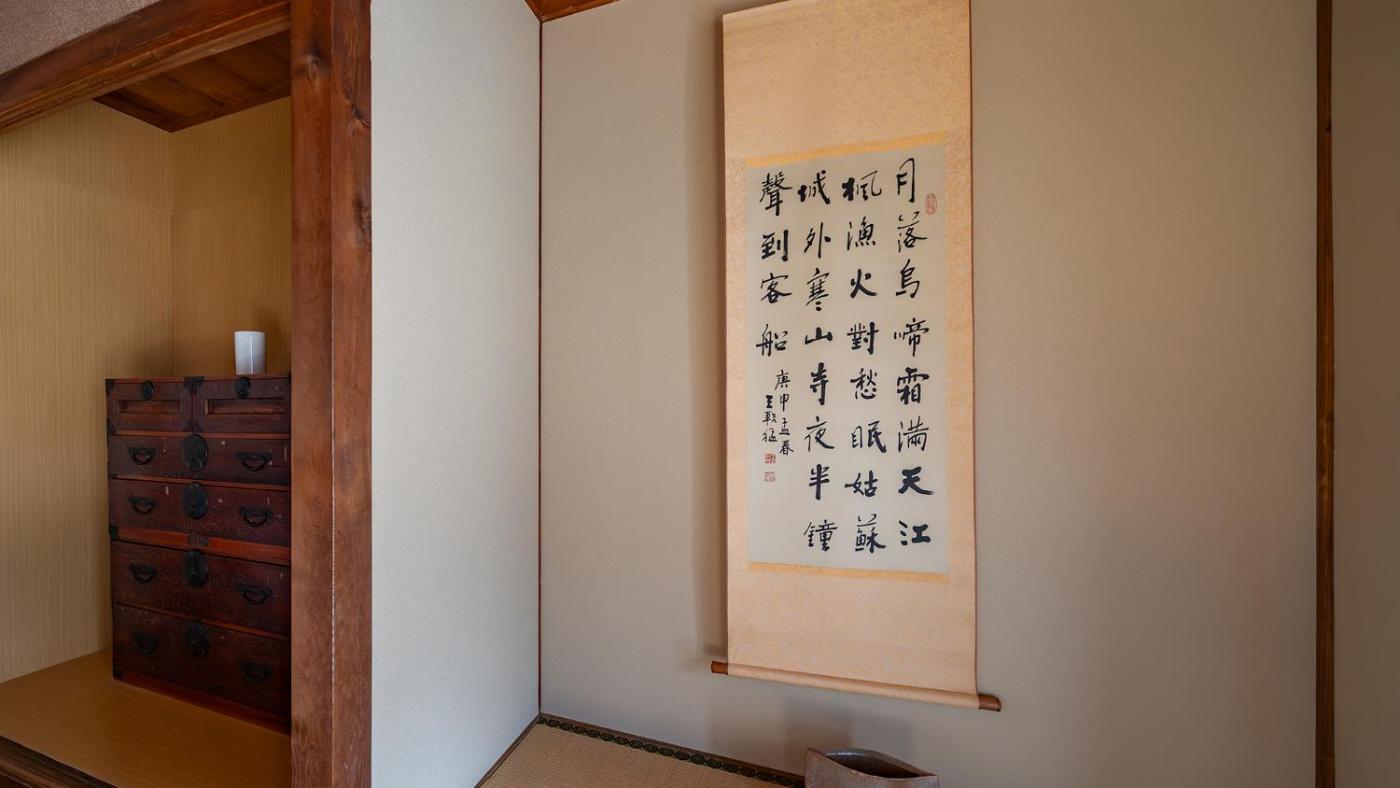 月落烏啼霜滿天江
楓漁火對愁眠姑蘇
城外寒山寺夜半鐘
聲到客船
庚申孟春
王